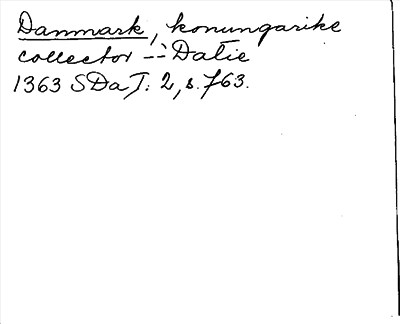 Danmark, konungarike
collector -:- Datie
1363 SDa I: 2, s. 763.